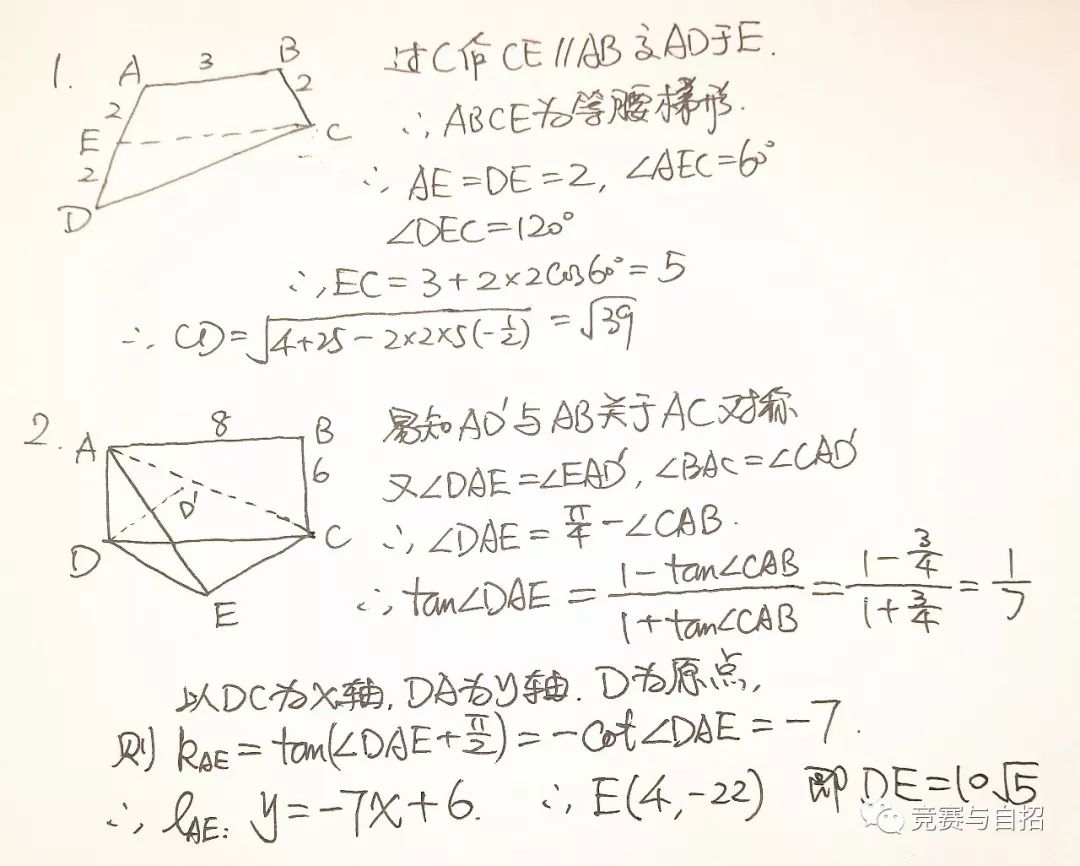 1. A 3 B 2 C 2 E 2 D
过C作CE∥AB交AD于E.
∴ ABCE为等腰梯形.
∴ AE=DE=2, ∠AEC=60°
∠DEC=120°
∴ EC=3+2×2cos60°=5
∴ CD=√(4+25-2×2×5(-1/2))=√39
2. A 8 B 6 C D D' E
易知AD'与AB关于AC对称
又∠DAE=∠EAD', ∠BAC=∠CAD'
∴ ∠DAE=π/4-∠CAB.
∴ tan∠DAE=(1-tan∠CAB)/(1+tan∠CAB)=(1-3/4)/(1+3/4)=1/7
以DC为X轴, DA为y轴. D为原点,
则 k_AE=tan(∠DAE+π/2)=-cot∠DAE=-7.
∴ l_AE: y=-7x+6. ∴ E(4,-22) 即DE=10√5
竞赛与自招